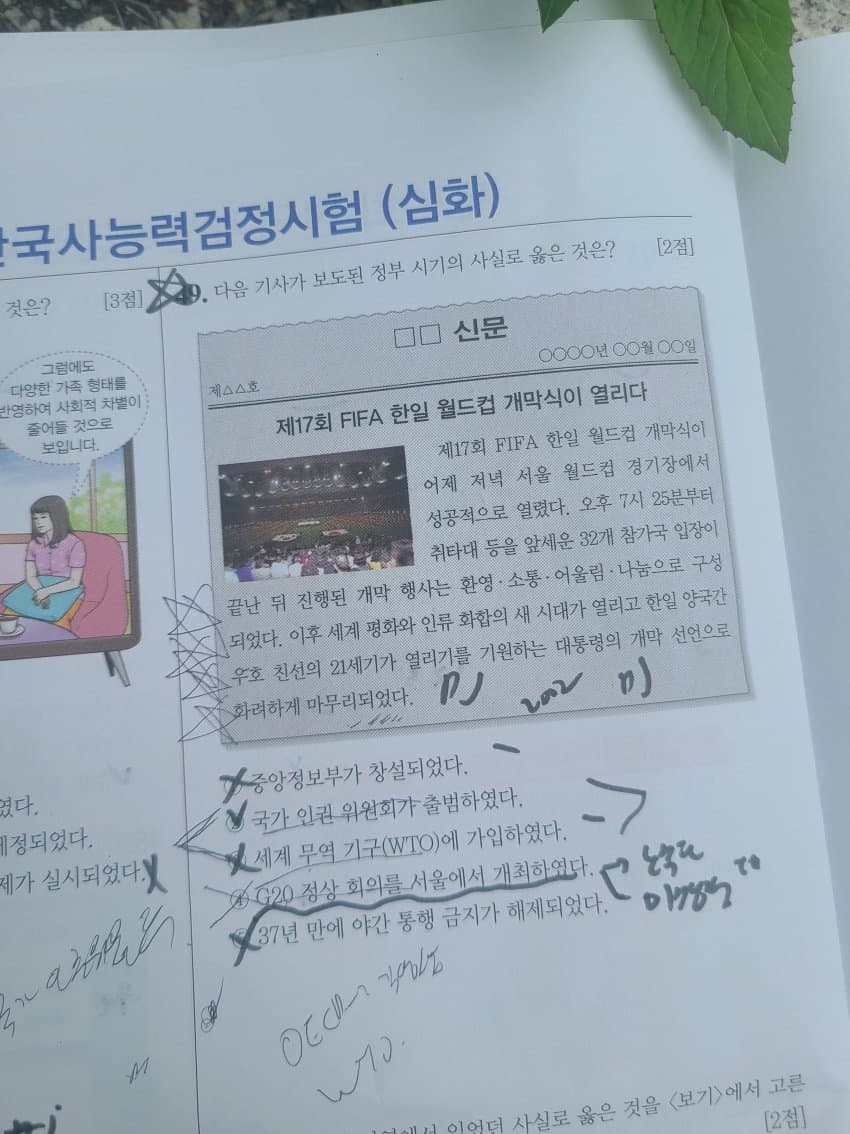 한국사능력검정시험 (심화)
것은? [3점]
그럼에도
다양한 가족 형태를
반영하여 사회적 차별이
줄어들 것으로
보입니다.
였다.
제정되었다.
제가 실시되었다.
49. 다음 기사가 보도된 정부 시기의 사실로 옳은 것은? [2점]
□□ 신문
제△△호
○○○○년 ○○월 ○○일
제17회 FIFA 한일 월드컵 개막식이 열리다
제17회 FIFA 한일 월드컵 개막식이
어제 저녁 서울 월드컵 경기장에서
성공적으로 열렸다. 오후 7시 25분부터
취타대 등을 앞세운 32개 참가국 입장이
끝난 뒤 진행된 개막 행사는 환영·소통·어울림·나눔으로 구성
되었다. 이후 세계 평화와 인류 화합의 새 시대가 열리고 한일 양국간
우호 친선의 21세기가 열리기를 기원하는 대통령의 개막 선언으로
화려하게 마무리되었다.
DJ 2002 DJ
① 중앙정보부가 창설되었다.
② 국가 인권 위원회가 출범하였다.
③ 세계 무역 기구(WTO)에 가입하였다.
④ G20 정상 회의를 서울에서 개최하였다.
⑤ 37년 만에 야간 통행 금지가 해제되었다.
WTO.
있었던 사실로 옳은 것을 <보기>에서 고른
[2점]